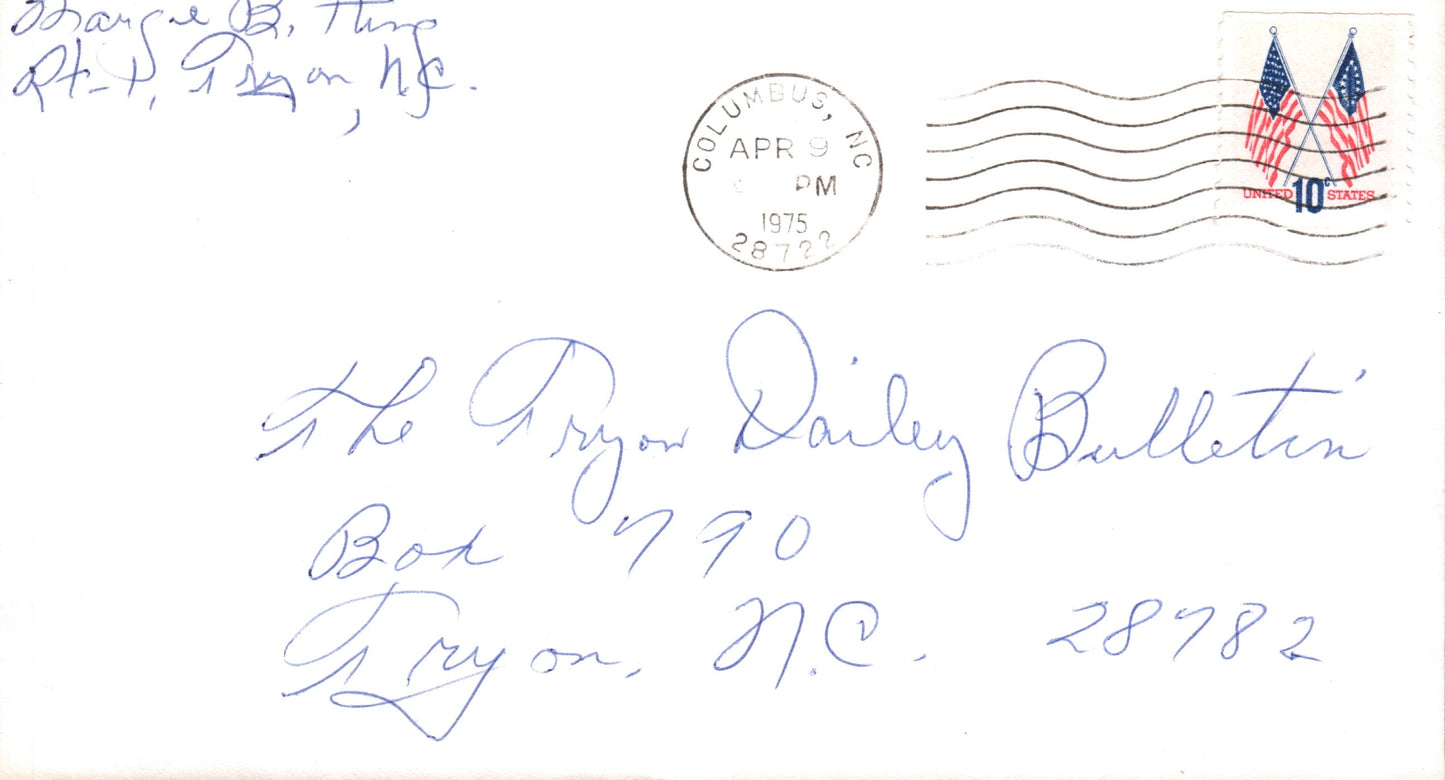 Margie B.
Rt-1, Tryon, N.C.
COLUMBUS, NC
APR 9
PM
1975
28722
UNITED 10c STATES
The Tryon Dailey Bulletin
Box 790
Tryon, N.C. 28782